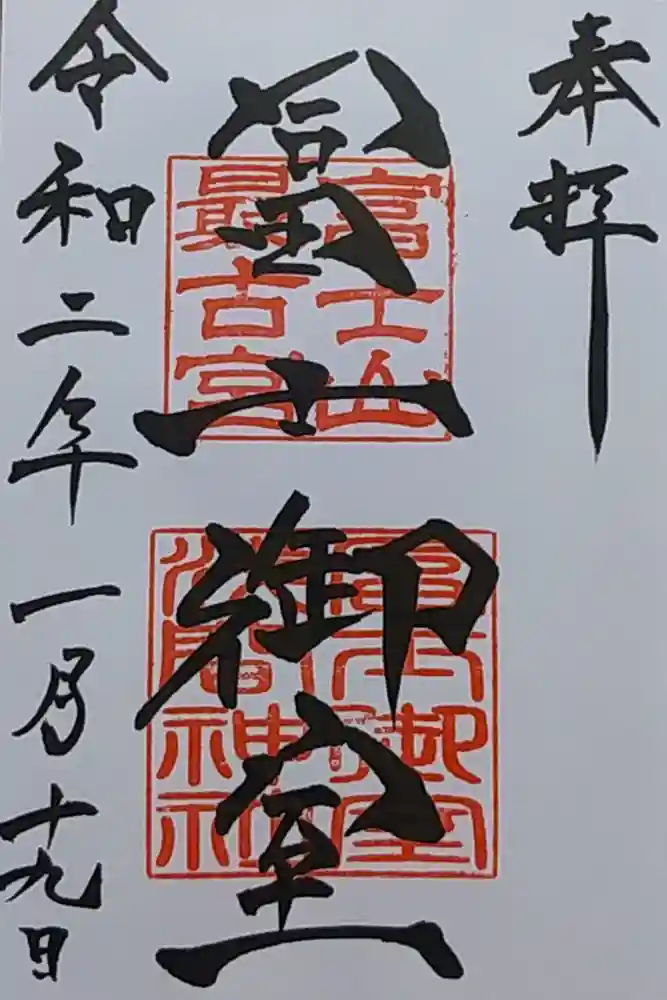 奉拝
富士御室
富士山
最古宮
冨士御室
浅間神社
令和二年一月十九日